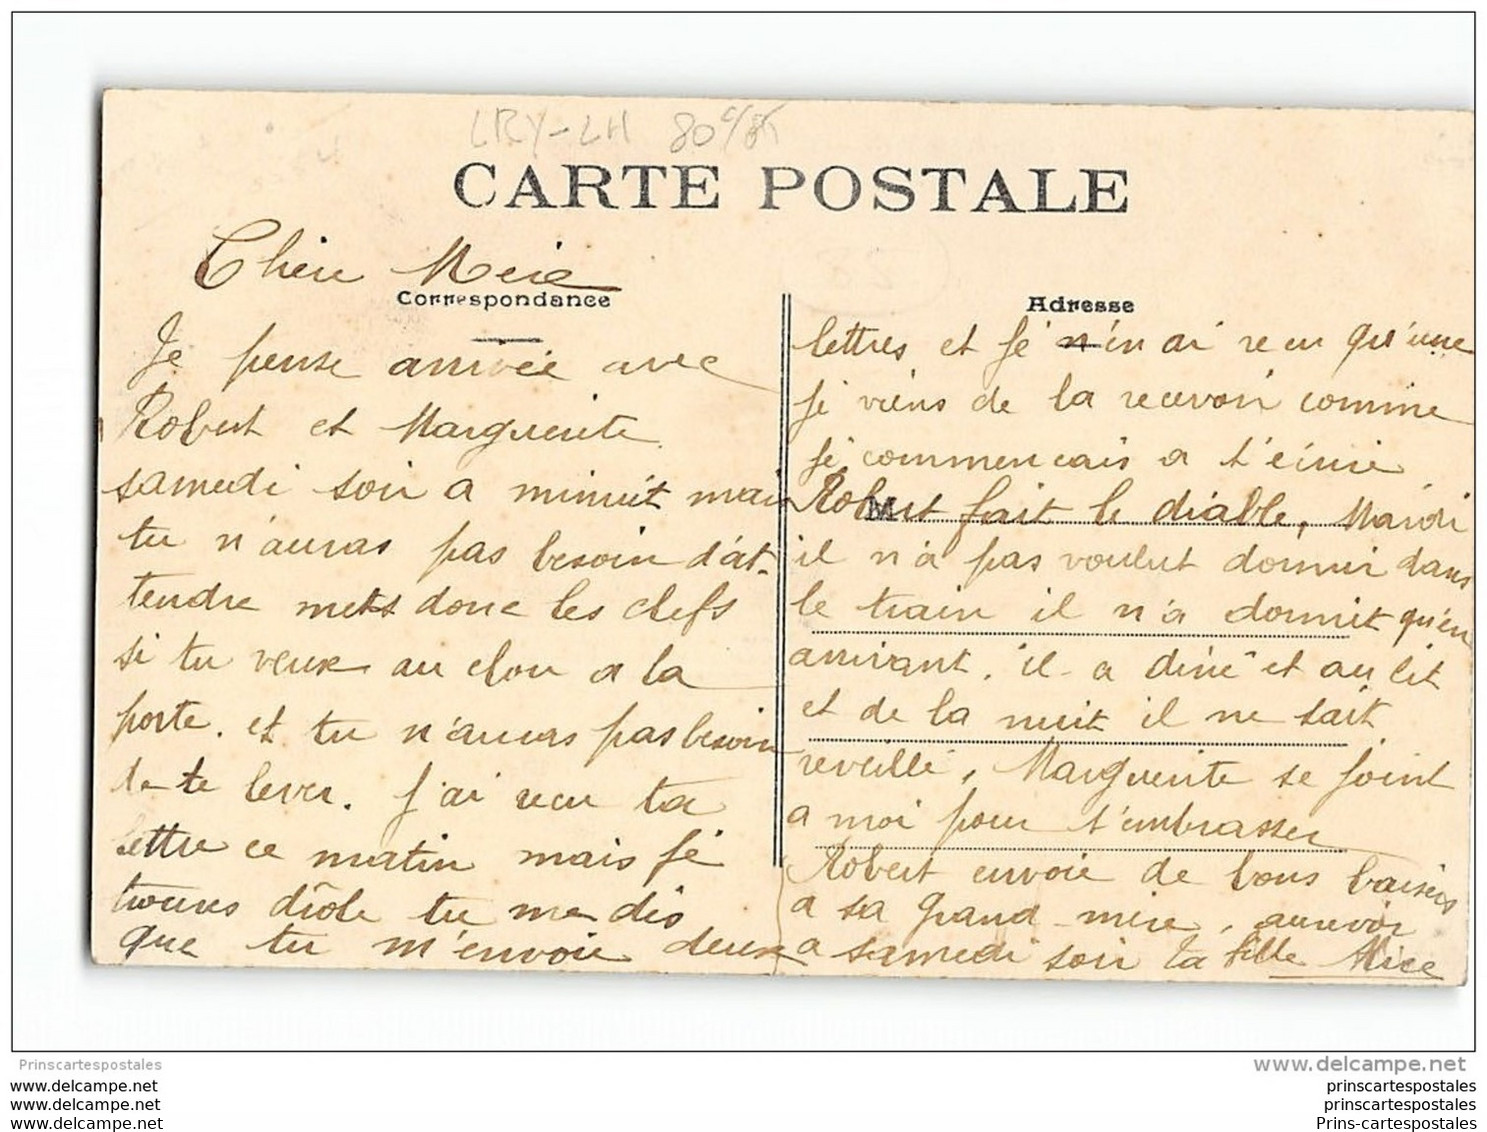 LRY-LH 80
CARTE POSTALE
Chère Mère
Correspondance
Je pense arrivée avec
Robert et Marguerite
samedi soir a minuit mais
tu n'auras pas besoin d'at-
tendre mets donc les clefs
si tu veux au clou a la
porte. et tu n'auras pas besoin
de te lever. j'ai reçu ta
lettre ce matin mais je
trouves drôle tu me dis
que tu m'envoie deux
Adresse
lettres et je n'en ai reçu qu'une
je viens de la recevoir comme
je commencais a t'écrire
M
Robert fait le diable, Mardi
il n'a pas voulut dormir dans
le train il n'a dormit qu'en
arrivant. il a diné et au lit
et de la nuit il ne sait
reveillé, Marguerite se joint
a moi pour t'embrasser
Robert envoie de bons baisers
a sa grand-mère, aurevoir
a samedi soir ta fille Alice
Prinscartespostales
www.delcampe.net
www.delcampe.net
www.delcampe.net
www.delcampe.net
prinscartespostales
prinscartespostales
Prins-cartespostales